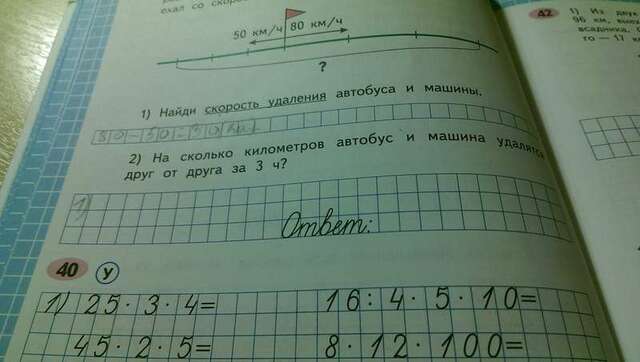 ехал со скоро
50 км/ч 80 км/ч
?
1) Найди скорость удаления автобуса и машины.
80-50=30 км
2) На сколько километров автобус и машина удалятся
друг от друга за 3 ч?
1)
Ответ:
40 У
1) 25·3·4= 16:4·5·10=
45·2·5= 8·12·100=
42 1) Из двух
96 км, выех
всадника.
го — 17 к